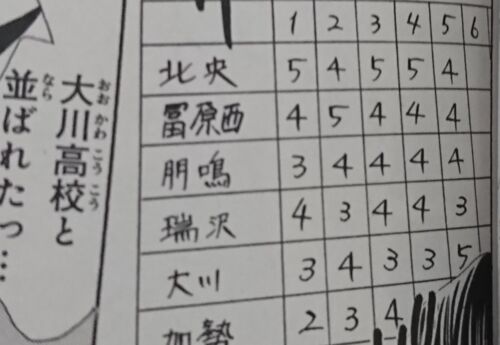 1 2 3 4 5 6
北央 5 4 5 5 4
冨原西 4 5 4 4 4
朋鳴 3 4 4 4 4
瑞沢 4 3 4 4 3
大川 3 4 3 3 5
加勢 2 3 4
大川高校と
おおかわこうこう
並ばれたっ…
なら